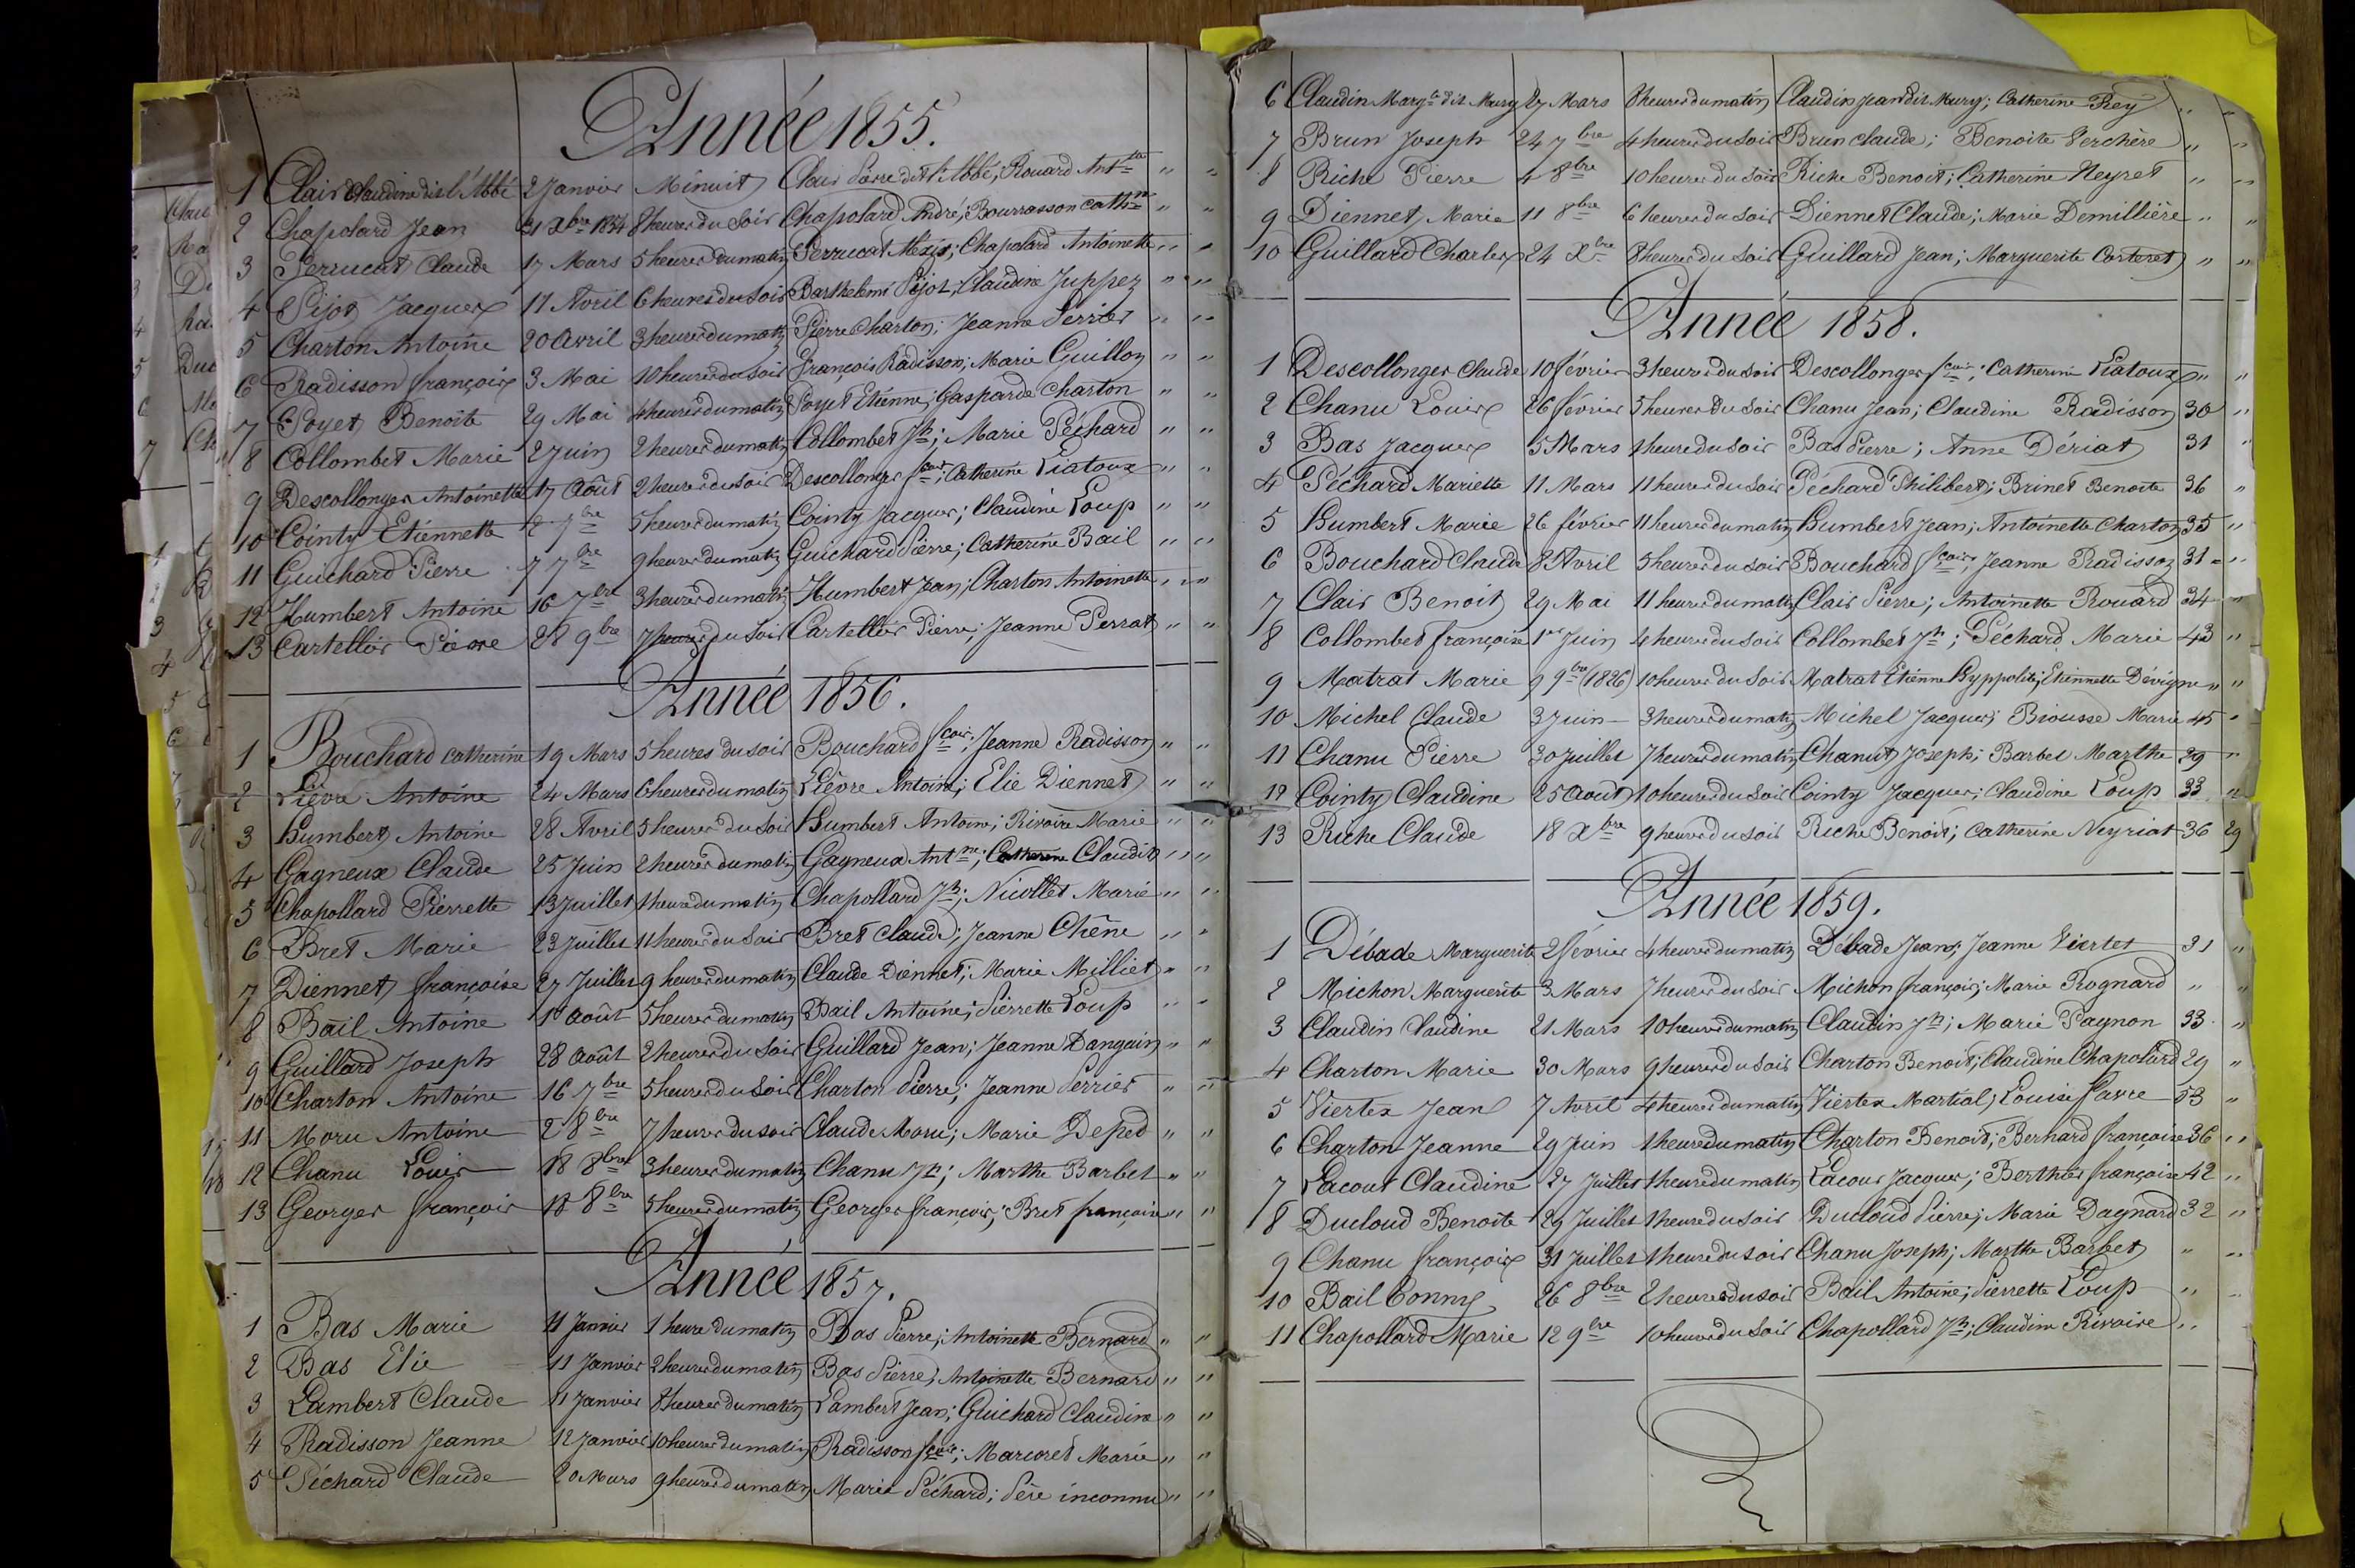 Année 1855.
1 Clair Claudine dit l'Abbé 2 Janvier Minuit Clair Pierre dit l'Abbé; Rouard Ant.tte " "
2 Chapolard Jean 31 Xbre 1854 8 heures du Soir Chapolard André; Bourrasson Cath.ne " "
3 Perrucat Claude 17 Mars 5 heures du matin Perrucat Alexis; Chapolard Antoinette " "
4 Pijot Jacques 17 Avril 6 heures du Soir Barthelemi Pijot; Claudine Juppez " "
5 Charton Antoine 20 Avril 3 heures du matin Pierre Charton; Jeanne Perrier " "
6 Radisson françois 3 Mai 10 heures du Soir François Radisson; Marie Guillon " "
7 Poyet Benoîte 29 Mai 4 heures du matin Poyet Etienne; Gasparde Charton " "
8 Collombet Marie 2 Juin 2 heures du matin Collombet Jh; Marie Péchard " "
9 Descollonges Antoinette 17 Août 2 heures du Soir Descollonges fcois; Catherine Liatoux " "
10 Cointy Etiennette 2 7bre 5 heures du matin Cointy Jacques; Claudine Loup " "
11 Guichard Pierre 7 7bre 9 heures du matin Guichard Pierre; Catherine Bail " "
12 Humbert Antoine 16 7bre 3 heures du matin Humbert Jean; Charton Antoinette " "
13 Cartellier Pierre 28 9bre 7 heures du Soir Cartellier Pierre; Jeanne Perrat " "
Année 1856.
1 Bouchard Catherine 19 Mars 5 heures du soir Bouchard fcois; Jeanne Radisson " "
2 Lièvre Antoine 24 Mars 6 heures du matin Lièvre Antoine; Elie Diennet " "
3 Humbert Antoine 28 Avril 5 heures du Soir Humbert Antoine; Rivoire Marie " "
4 Gagneux Claude 25 Juin 2 heures du matin Gagneux Ant.ne; Catherine Claudit " "
5 Chapollard Pierrette 13 Juillet 1 heure du matin Chapollard Jh; Nicollet Marie " "
6 Bret Marie 23 Juillet 11 heures du Soir Bret Claude; Jeanne Chêne " "
7 Diennet françoise 27 Juillet 9 heures du matin Claude Diennet; Marie Milliet " "
8 Bail Antoine 1er Août 5 heures du matin Bail Antoine; Pierrette Loup " "
9 Guillard Joseph 28 Août 2 heures du Soir Guillard Jean; Jeanne Danguin " "
10 Charton Antoine 16 7bre 5 heures du Soir Charton Pierre; Jeanne Perrier " "
11 Moru Antoine 2 8bre 7 heures du soir Claude Moru; Marie Deped " "
12 Chanu Louis 18 8bre 3 heures du matin Chanu Jh; Marthe Barbet " "
13 Georges françois 18 8bre 5 heures du matin Georges françois; Bret françoise " "
Année 1857.
1 Bas Marie 11 Janvier 1 heure du matin Bas Pierre; Antoinette Bernard " "
2 Bas Elie 11 Janvier 2 heures du matin Bas Pierre; Antoinette Bernard " "
3 Lambert Claude 11 Janvier 8 heures du matin Lambert Jean; Guichard Claudine " "
4 Radisson Jeanne 12 Janvier 10 heures du matin Radisson fcois; Marcoret Marie " "
5 Péchard Claude 20 Mars 9 heures du matin Marie Péchard; Père inconnu " "
6 Claudin Marg.te dit Mury 27 Mars 8 heures du matin Claudin Jean dit Mury; Catherine Rey " "
7 Brun Joseph 24 7bre 4 heures du Soir Brun Claude; Benoite Verchère " "
8 Riche Pierre 4 8bre 10 heures du Soir Riche Benoit; Catherine Neyret " "
9 Diennet Marie 11 8bre 6 heures du Soir Diennet Claude; Marie Demillière " "
10 Guillard Charles 24 Xbre 8 heures du Soir Guillard Jean; Marguerite Carteret " "
Année 1858.
1 Descollonges Claude 10 février 3 heures du Soir Descollonges fcois; Catherine Liatoux " "
2 Chanu Louis 26 février 5 heures du Soir Chanu Jean; Claudine Radisson 30 "
3 Bas Jacques 5 Mars 1 heure du Soir Bas Pierre; Anne Dériat 31 "
4 Péchard Mariette 11 Mars 11 heures du Soir Péchard Philibert; Brinet Benoite 36 "
5 Humbert Marie 26 février 11 heures du matin Humbert Jean; Antoinette Charton 35 "
6 Bouchard Claude 8 Avril 5 heures du Soir Bouchard fcois; Jeanne Radisson 31 "
7 Clair Benoit 29 Mai 11 heures du matin Clair Pierre; Antoinette Rouard 34 "
8 Collombet françoise 1er Juin 4 heures du Soir Collombet Jh; Péchard Marie 43 "
9 Matrat Marie 9 9bre (1826) 10 heures du Soir Matrat Etienne Hyppolite; Etiennette Dévigne " "
10 Michel Claude 3 Juin 3 heures du matin Michel Jacques; Brousse Marie 45 "
11 Chanu Pierre 30 Juillet 7 heures du matin Chanut Joseph; Barbet Marthe 39 "
12 Cointy Claudine 25 Août 10 heures du Soir Cointy Jacques; Claudine Loup 33 "
13 Riche Claude 18 Xbre 9 heures du Soir Riche Benoit; Catherine Neyriat 36 29
Année 1859.
1 Débade Marguerite 2 février 4 heures du matin Débade Jean; Jeanne Viertet 31 "
2 Michon Marguerite 3 Mars 7 heures du Soir Michon françois; Marie Rognard " "
3 Claudin Claudine 21 Mars 10 heures du matin Claudin Jh; Marie Pagnon 33 "
4 Charton Marie 30 Mars 9 heures du Soir Charton Benoit; Claudine Chapolard 29 "
5 Viertex Jean 7 Avril 4 heures du matin Viertex Martial; Louise favre 53 "
6 Charton Jeanne 29 Juin 1 heure du matin Charton Benoit; Bernard françoise 36 "
7 Lacour Claudine 27 Juillet 1 heure du matin Lacour Jacques; Berthier françoise 42 "
8 Ducloud Benoite 29 Juillet 1 heure du Soir Ducloud Pierre; Marie Dagnard 32 "
9 Chanu françois 31 Juillet 1 heure du Soir Chanu Joseph; Marthe Barbet " "
10 Bail 26 8bre 2 heures du soir Bail Antoine; Pierrette Loup " "
11 Chapollard Marie 12 9bre 10 heures du Soir Chapollard Jh; Claudine Rivoire "